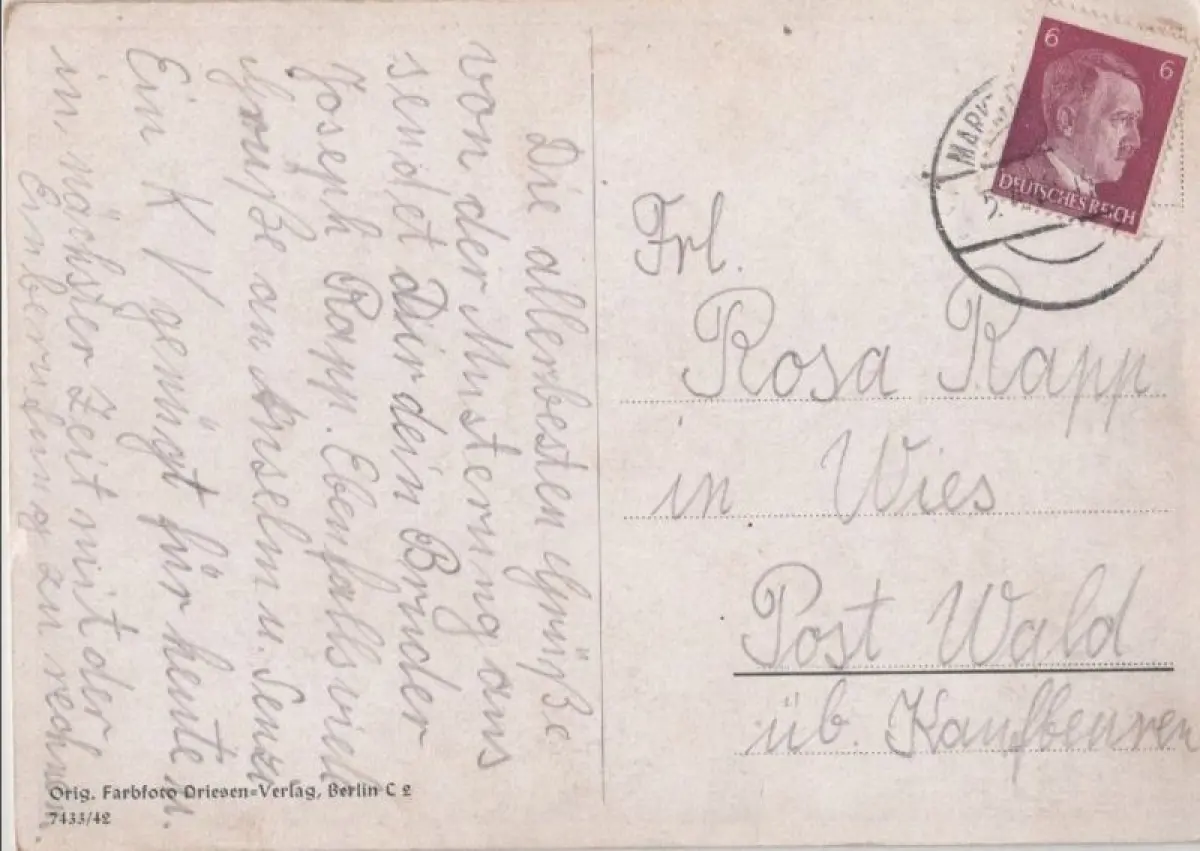 Die allerbesten Grüße
von der Musterung aus
sendet Dir dein Bruder
Joseph Rapp. Ebenfalls viele
Grüße an Anselm u. Senze
Ein KV genügt für heute u.
in nächster Zeit mit der
Einberufung zu rechnen.
6 6
DEUTSCHES REICH
MARK
Frl.
Rosa Rapp
in Wies
Post Wald
üb. Kaufbeuren
Orig. Farbfoto Driesen-Verlag, Berlin C 2
7433/42